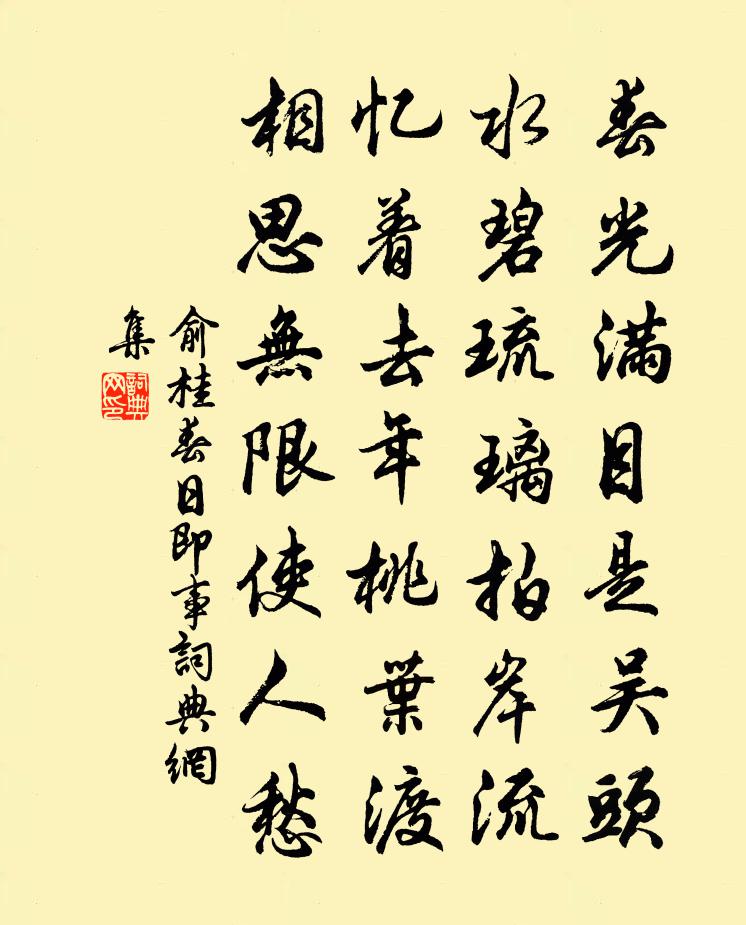 春光满目是吴头
水碧琉璃拍岸流
忆着去年桃葉渡
相思無限使人愁
俞桂春日即事詞典網
集
詞典网印